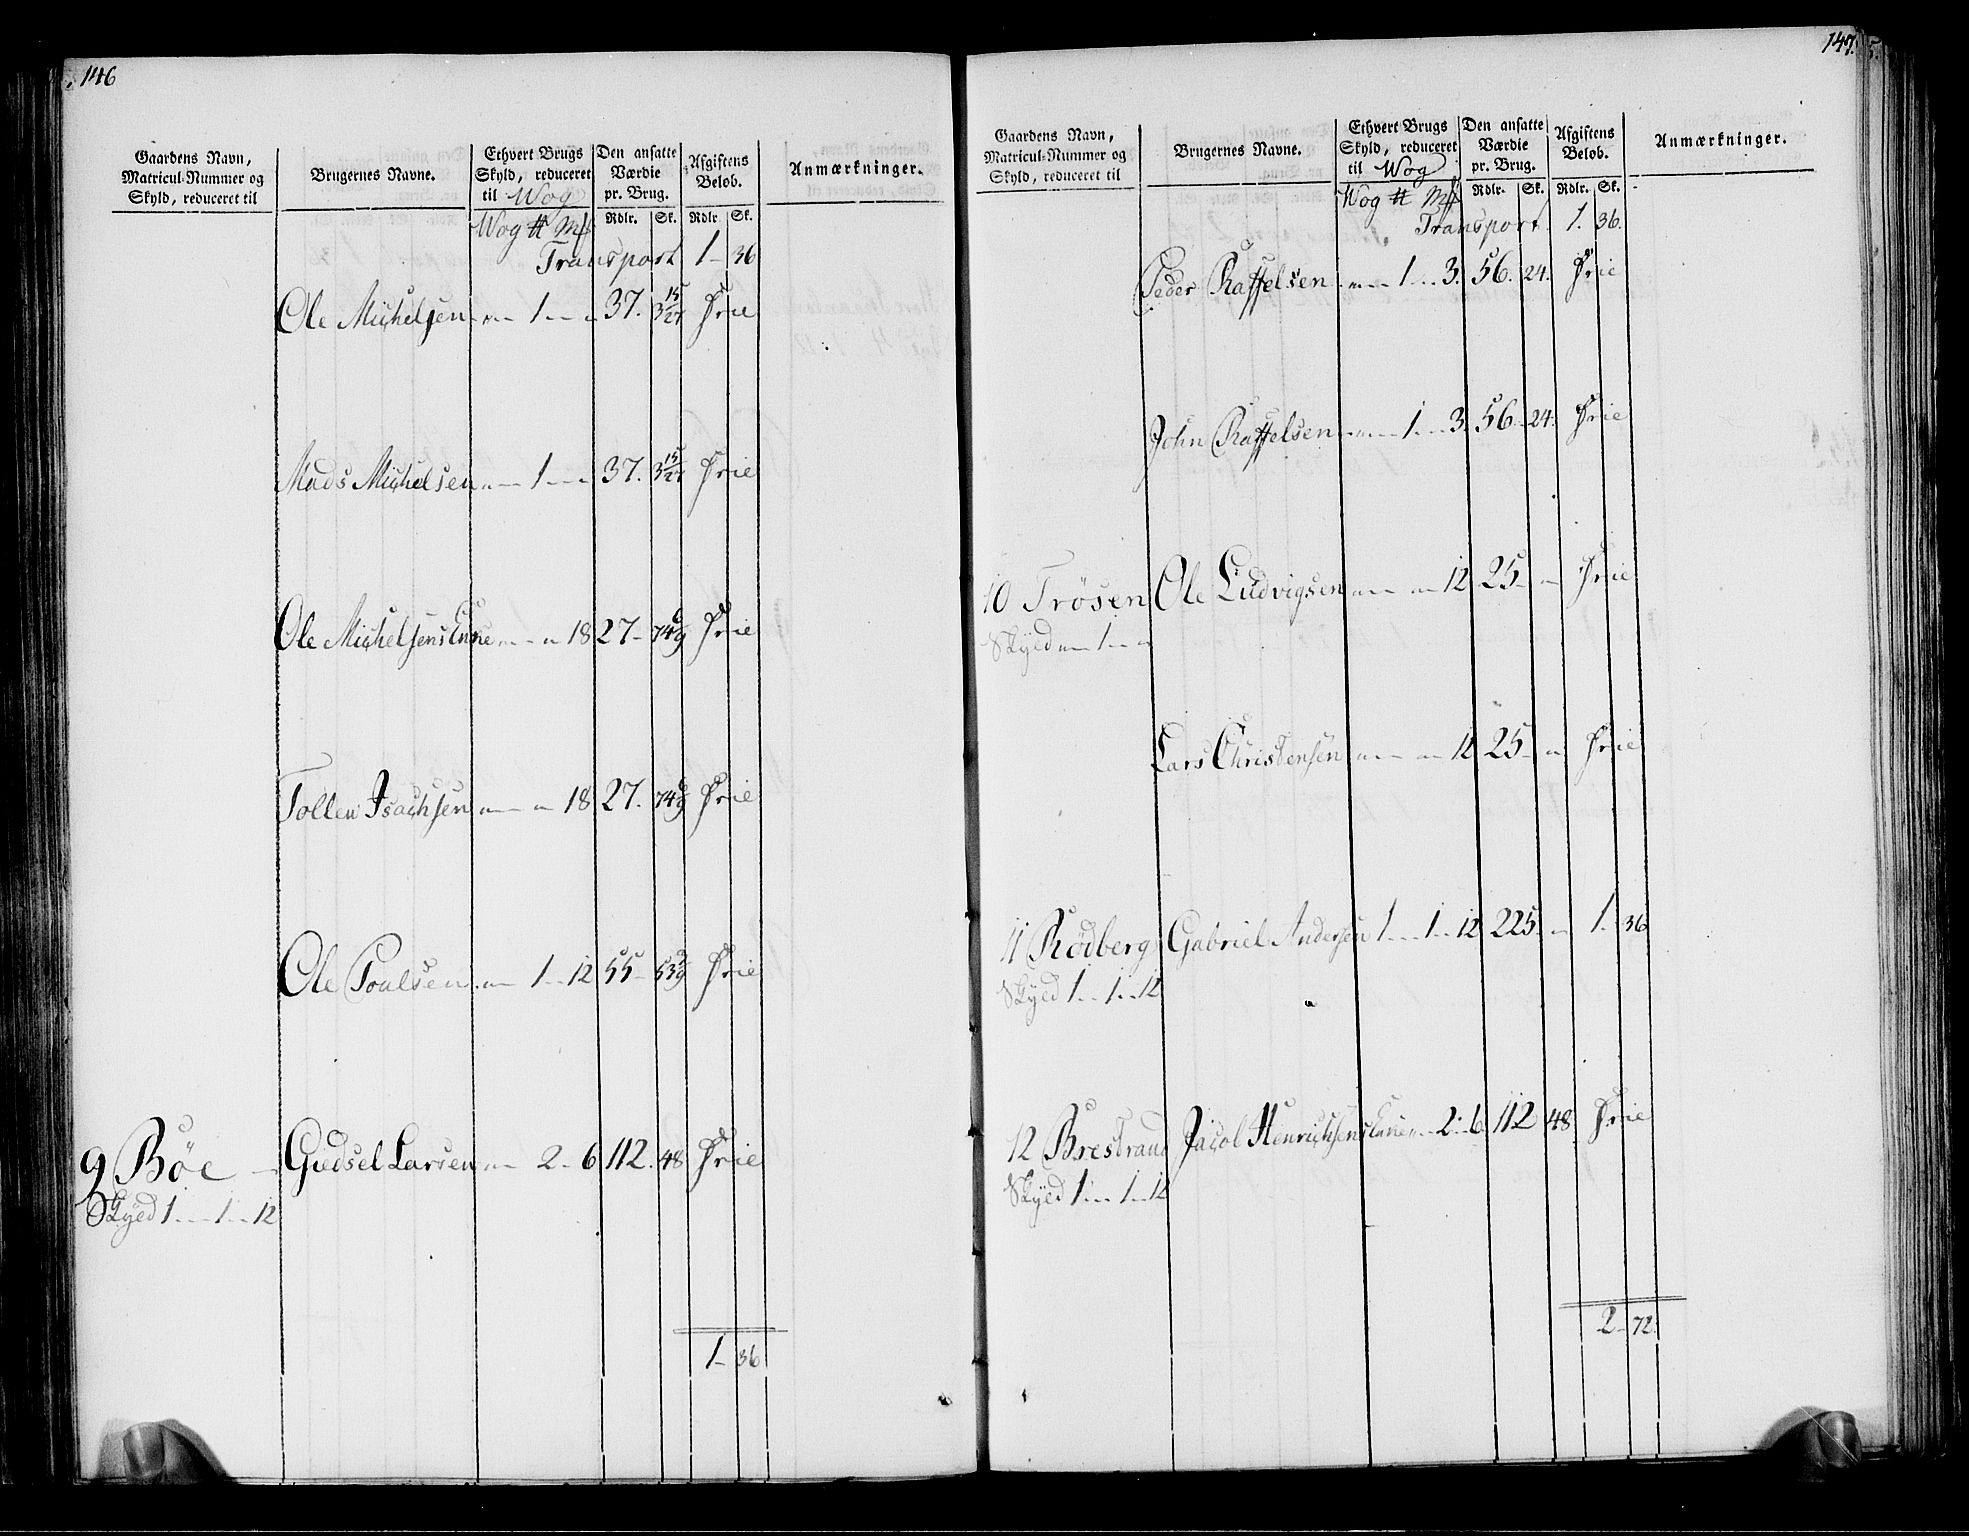 146
Gaardens Navn, Matricul-Nummer og Skyld, reduceret til
Brugernes Navne.
Ethvert Brugs Skyld, reduceret til Wog
Den ansatte Værdie pr. Brug.
Afgiftens Beløb.
Anmærkninger.
Wog ℔ Mk Rdlr. Sk. Rdlr Sk.
Transport 1 - 36
Ole Michelsen - - - 1 - - - 37. 3 15/27 Frie
Mads Michelsen - - - 1 - - - 37. 3 15/27 Frie
Ole Michelsens Enne - - - 18 27 - 74 Frie
Tollen Isachsen - - - 18 27. 74 Frie
Ole Poulsen - - 1 - 12 55 - 53 Frie
9 Bøe - Gudsel Larsen - - 2 - 6 112. 48 Frie
Skyld 1 - - 1 - - 12
1 - 36
147.
Gaardens Navn, Matricul-Nummer og Skyld, reduceret til
Brugernes Navne.
Ethvert Brugs Skyld, reduceret til Wog
Den ansatte Værdie pr. Brug.
Afgiftens Beløb.
Anmærkninger.
Wog ℔ Mk Rdlr. Sk. Rdlr. Sk.
Transport 1. 36.
Peder Raffelsen - - - 1 - - 3. 56. 24. Frie
John Raffelsen - - - 1 - - 3 56 - 24. Frie
10 Trösen Ole Ludvigsen - - - 12 25 - - Frie
Skyld - - 1 - -
Lars Christensen - - - 12 25 - - Frie
11 Rödberg Gabriel Andersen 1 - - 1 - 12 225 - - 1. 36
Skyld 1 - - 1 - - 12
12 Brestrand Jacob Henrichsens Enne - - 2 - 6 112 48 Frie
Skyld 1 - - 1 - - 12
2 - 72.